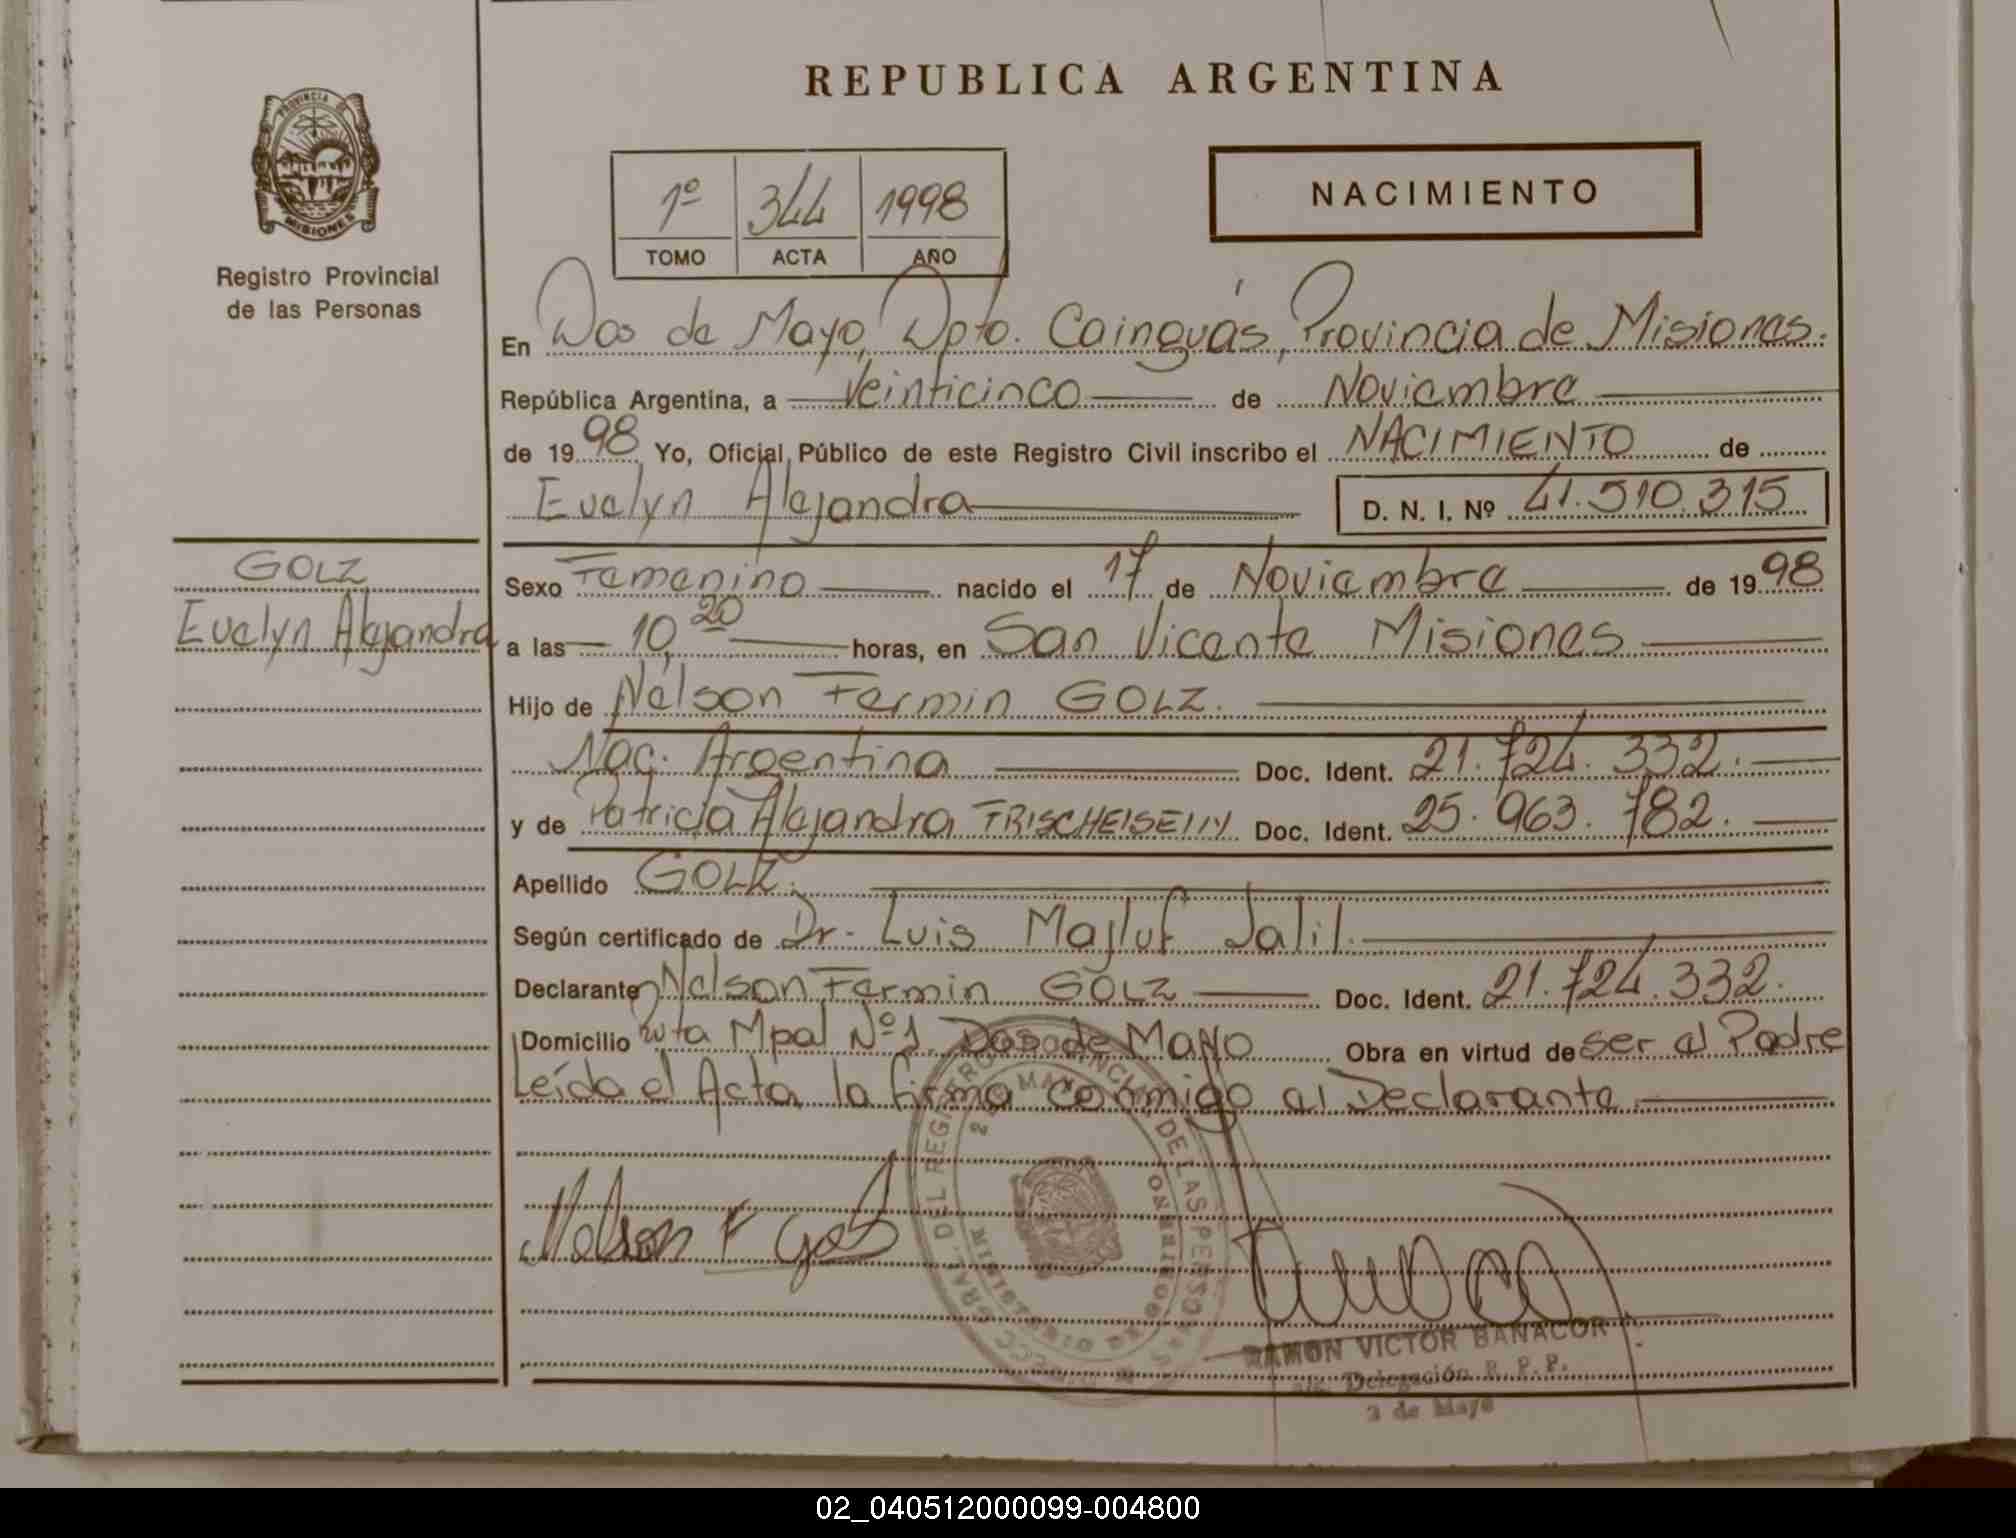 REPUBLICA ARGENTINA
PROVINCIA DE
MISIONES
Registro Provincial
de las Personas
1º 344 1998
TOMO ACTA AÑO
NACIMIENTO
En Dos de Mayo, Dpto. Cainguás, Provincia de Misiones.
República Argentina, a Veinticinco de Noviembre
de 1998 Yo, Oficial Público de este Registro Civil inscribo el NACIMIENTO de
Evelyn Alejandra D. N. I. Nº 41.510.315
GOLZ
Evelyn Alejandra
Sexo Femenino nacido el 17 de Noviembre de 1998
a las 10,20 horas, en San Vicente Misiones
Hijo de Nelson Fermin GOLZ.
Nac. Argentina Doc. Ident. 21.724.332.
y de Patricia Alejandra Doc. Ident. 25.963.782.
Apellido GOLZ.
Según certificado de Dr. Luis Majluf Jalil.
Declarante Nelson Fermin GOLZ Doc. Ident. 21.724.332.
Domicilio Ruta Mpal Nº1 Dos de Mayo Obra en virtud de ser el Padre
Leída el Acta la firma conmigo el Declarante
Nelson F
RAMON VICTOR BANACOR
Delegación R. P. P.
2 de Mayo
02_040512000099-004800